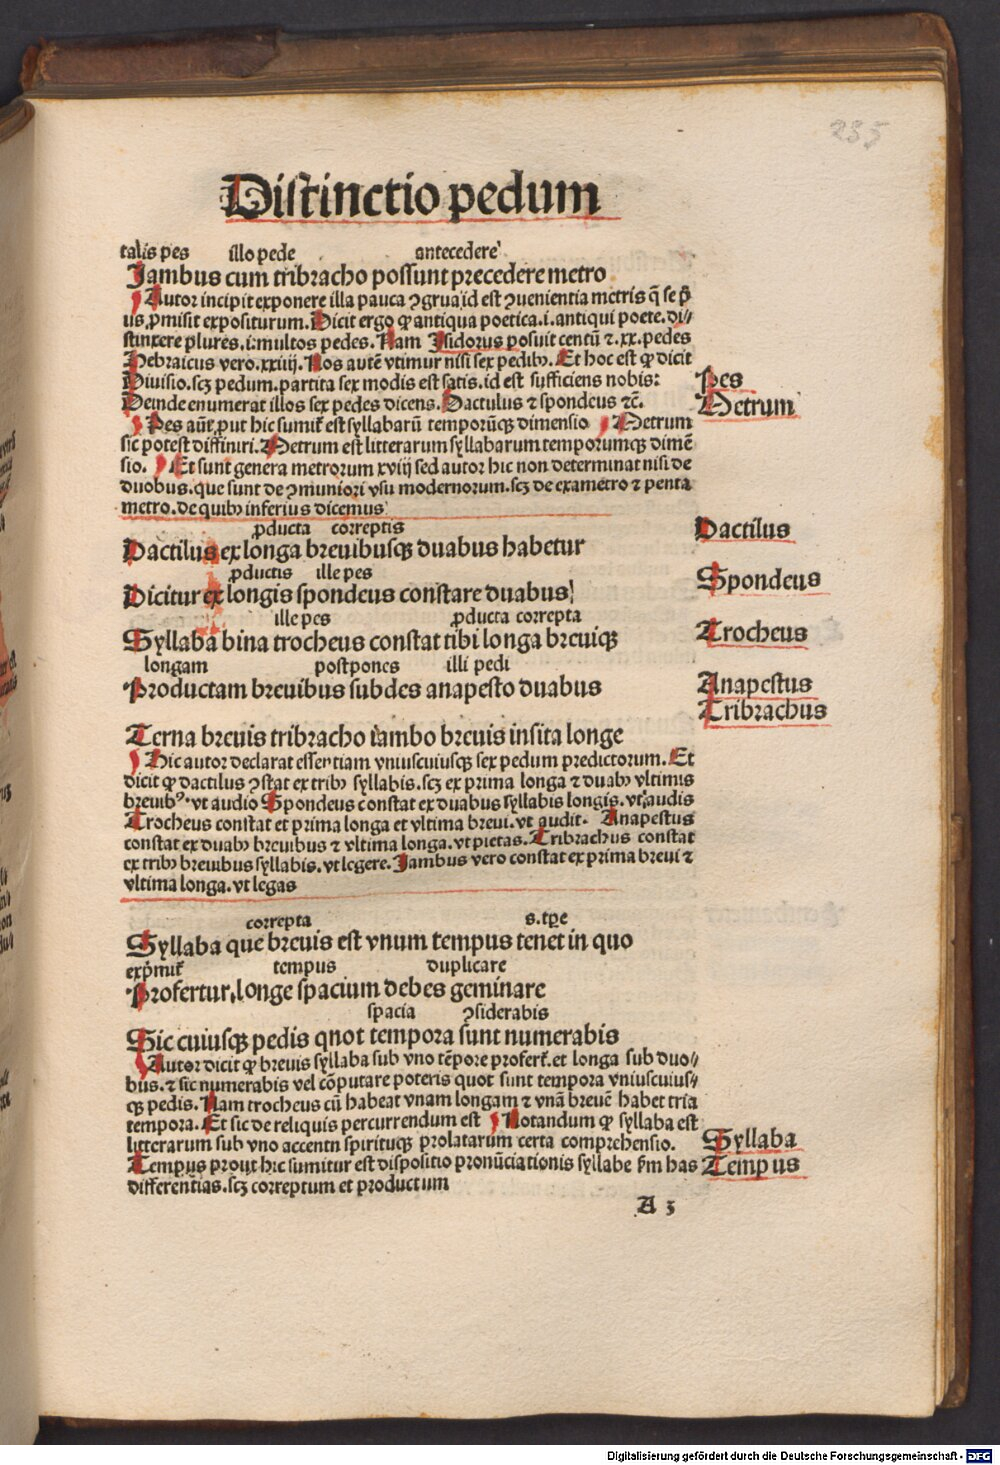 235
Distinctio pedum
talis pes illo pede antecedere
Jambus cum tribracho possunt precedere metro
Autor incipit exponere illa pauca ꝯgrua id est ꝯuenientia metris q̄ se p̄
us ꝓmisit expositurum. Dicit ergo ꝙ antiqua poetica .i. antiqui poete. di⸗
stinxere plures .i. multos pedes. Nam Isidorus posuit centū ⁊ .xx. pedes
Hebraicus vero .xxiiij. Nos autē vtimur nisi sex pedibꝫ. Et hoc est ꝙ dicit
Diuisio .scꝫ pedum. partita sex modis est satis. id est sufficiens nobis:
Deinde enumerat illos sex pedes dicens. Dactulus ⁊ spondeus ⁊c̄.
Pes
Metrum
Pes aūt ꝓut hic sumit̄ est syllabarū temporūqꝫ dimensio Metrum
sic potest diffiniri. Metrum est litterarum syllabarum temporumqꝫ dimē
sio. Et sunt genera metrorum xviij sed autor hic non determinat nisi de
duobus. que sunt de ꝯmuniori vsu modernorum. scꝫ de exametro ⁊ penta
metro. de quibꝫ inferius dicemus
ꝓducta correptis
Dactilus ex longa breuibusqꝫ duabus habetur
Dactilus
ꝓductis ille pes
Dicitur ex longis spondeus constare duabus
Spondeus
ille pes ꝓducta correpta
Syllaba bina trocheus constat tibi longa breuiqꝫ
Trocheus
longam postpones illi pedi
Productam breuibus subdes anapesto duabus
Anapestus
Tribrachus
Terna breuis tribracho iambo breuis insita longe
Hic autor declarat essentiam vniuscuiusqꝫ sex pedum predictorum. Et
dicit ꝙ dactilus ꝯstat ex tribꝫ syllabis. scꝫ ex prima longa ⁊ duabꝫ vltimis
breuibꝰ. vt audio Spondeus constat ex duabus syllabis longis. vt audis
Trocheus constat et prima longa et vltima breui. vt audit. Anapestus
constat ex duabꝫ breuibus ⁊ vltima longa. vt pietas. Tribrachus constat
ex tribꝫ breuibus syllabis. vt legere. Jambus vero constat ex prima breui ⁊
vltima longa. vt legas
correpta s. tꝑe
Syllaba que breuis est vnum tempus tenet in quo
exp̄mit̄ tempus duplicare
Profertur, longe spacium debes geminare
spacia ꝯsiderabis
Sic cuiusqꝫ pedis qnot tempora sunt numerabis
Autor dicit ꝙ breuis syllaba sub vno tēpore profert̄. et longa sub duo⸗
bus. ⁊ sic numerabis vel cōputare poteris quot sunt tempora vniuscuius⸗
qꝫ pedis. Nam trocheus cū habeat vnam longam ⁊ vnā breuē habet tria
tempora. Et sic de reliquis percurrendum est Notandum ꝙ syllaba est
litterarum sub vno accentn spirituqꝫ prolatarum certa comprehensio.
Syllaba
Tempus prout hic sumitur est dispositio pronūciationis syllabe fm has
Tempus
differentias. scꝫ correptum et productum
A 3
Digitalisierung gefördert durch die Deutsche Forschungsgemeinschaft - DFG